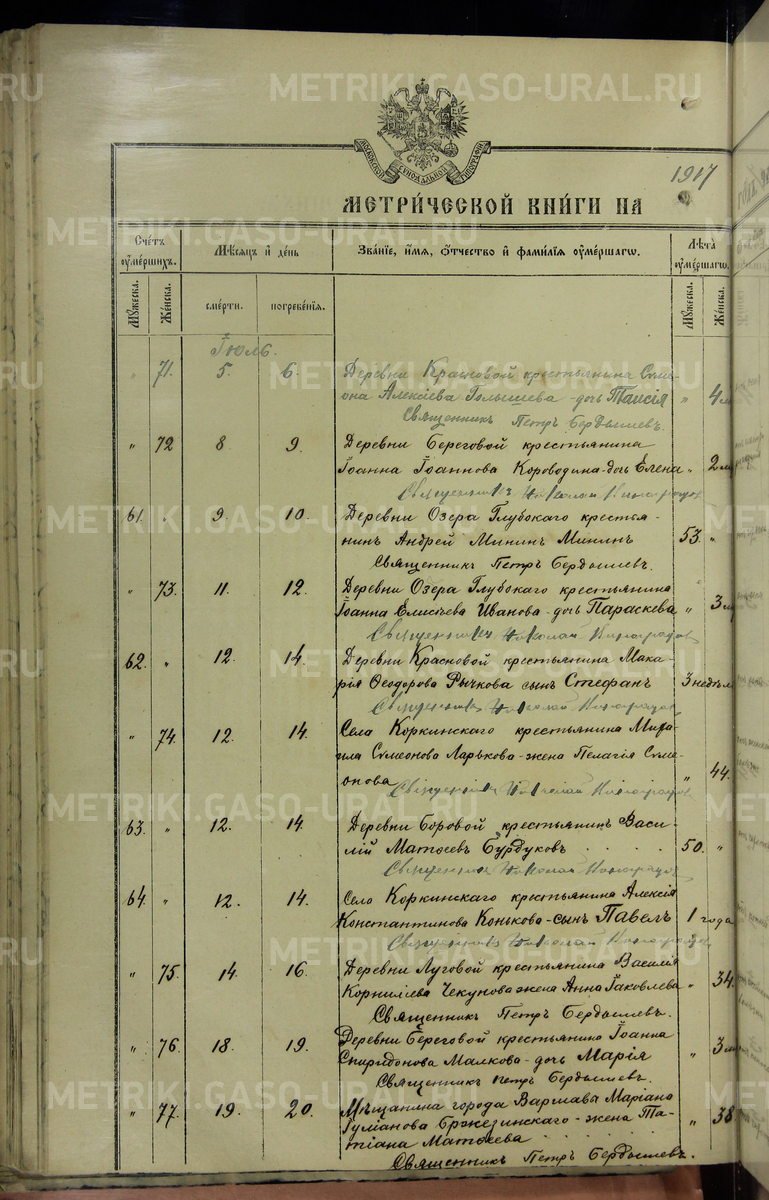 METRIKI.GASO-URAL.RU
МОСКОВСКОЙ СѴНОДАЛЬНОЙ ТИПОГРАФІИ
1917
МЕТРИ́ЧЕСКОЙ КНИ́ГИ НА
Сче́тъ ᲂу҆ме́ршихъ. Мѣ́сяцъ и҆ де́нь Зва́нїе, и҆́мя, ѻ҆́тчество и҆ фами́лїя ᲂу҆ме́ршагѡ. Лѣ́та ᲂу҆ме́ршагѡ.
Мꙋ́жеска. Же́нска. сме́рти. погребе́нїя. Мꙋ́жеска. Же́нска.
Іюль.
" 71. 5. 6. Деревни Красновой крестьянина Симе-
она Алексіева Голышева - дочь Таисія " 4
Священникъ Петръ Бердышевъ.
" 72 8 9. Деревни Береговой крестьянина
Іоанна Іоаннова Короводина - дочь Елена " 2
Священникъ Николай
61. " 9. 10. Деревни Озера Глубокаго крестья-
нинъ Андрей Мининъ Мининъ 53 "
Священникъ Петръ Бердышевъ.
" 73. 11. 12. Деревни Озера Глубокаго крестьянина
Іоанна Елисѣева Иванова - дочь Параскева " 3
Священникъ Николай
62. " 12. 14. Деревни Красновой крестьянина Мака-
рія Ѳеодорова Рычкова сынъ Стефанъ 3 недѣли
Священникъ Николай
" 74. 12. 14. Села Коркинскаго крестьянина Миха-
ила Симеонова Ларькова - жена Пелагія Симе-
онова " 44.
Священникъ Николай
63. " 12. 14. Деревни Боровой крестьянинъ Васи-
лій Матѳеевъ Бурдуковъ 50. "
Священникъ Николай
64. " 12. 14. Село Коркинскаго крестьянина Алексія
Константинова Конькова - сынъ Павелъ 1 года
Священникъ Николай
" 75. 14. 16. Деревни Луговой крестьянина Василія
Корниліева Чекунова жена Анна Іаковлева " 34.
Священникъ Петръ Бердышевъ.
" 76. 18. 19. Деревни Береговой крестьянина Іоанна
Спиридонова Малкова - дочь Марія " 3
Священникъ Петръ Бердышевъ.
" 77. 19. 20. Мѣщанина города Варшава Маріана
Бржезинскаго - жена Та- " 38
тіана Матѳеева
Священникъ Петръ Бердышевъ.